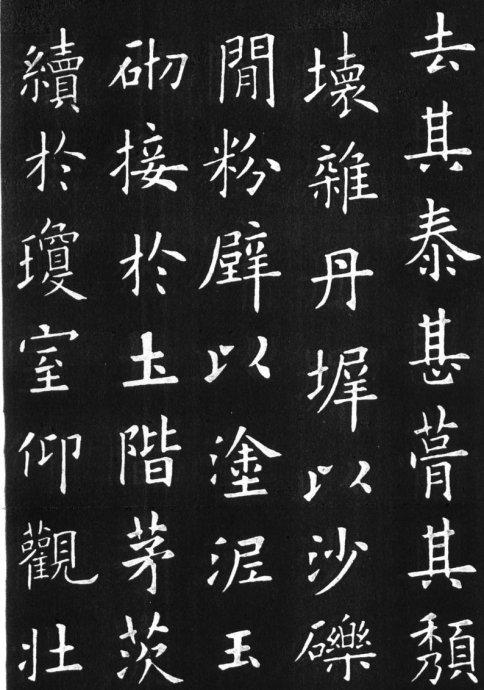 去其泰甚葺其頽
壞雜丹墀以沙礫
閒粉壁以塗泥玉
砌接於土階茅茨
續於瓊室仰觀壯